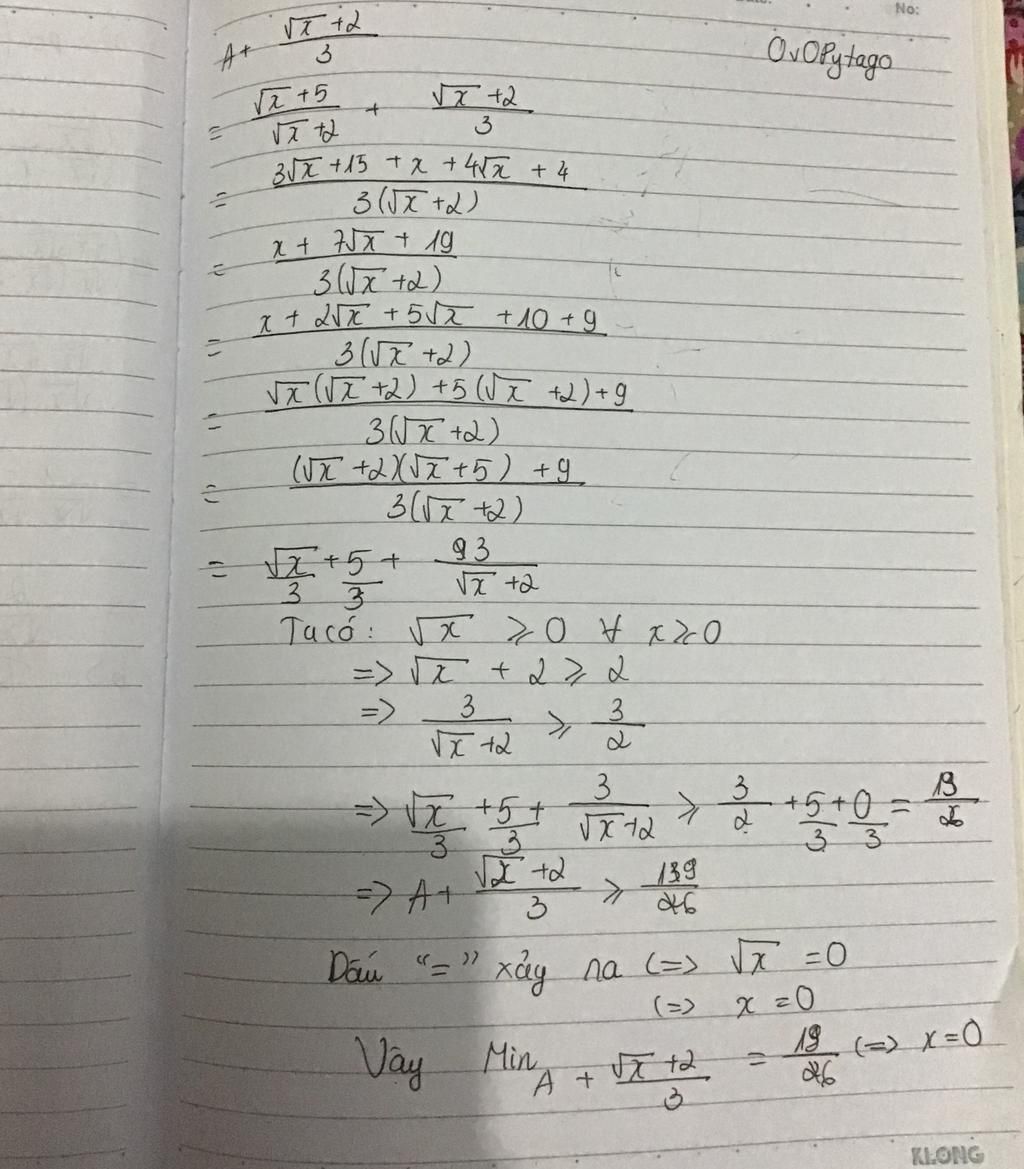 No:
A + \frac{\sqrt{x}+2}{3}
OvOPytago
= \frac{\sqrt{x}+5}{\sqrt{x}+2} + \frac{\sqrt{x}+2}{3}
= \frac{3\sqrt{x}+15+x+4\sqrt{x}+4}{3(\sqrt{x}+2)}
= \frac{x+7\sqrt{x}+19}{3(\sqrt{x}+2)}
= \frac{x+2\sqrt{x}+5\sqrt{x}+10+9}{3(\sqrt{x}+2)}
= \frac{\sqrt{x}(\sqrt{x}+2)+5(\sqrt{x}+2)+9}{3(\sqrt{x}+2)}
= \frac{(\sqrt{x}+2)(\sqrt{x}+5)+9}{3(\sqrt{x}+2)}
= \frac{\sqrt{x}}{3} + \frac{5}{3} + \frac{3}{\sqrt{x}+2}
Ta có: \sqrt{x} ⩾ 0 ∀ x ⩾ 0
=> \sqrt{x} + 2 ⩾ 2
=> \frac{3}{\sqrt{x}+2} ⩾ \frac{3}{2}
=> \frac{\sqrt{x}}{3} + \frac{5}{3} + \frac{3}{\sqrt{x}+2} ⩾ \frac{3}{2} + \frac{5}{3} + \frac{0}{3} = \frac{19}{6}
=> A + \frac{\sqrt{x}+2}{3} ⩾ \frac{19}{6}
Dấu "=" xảy ra <=> \sqrt{x} = 0
<=> x = 0
Vậy Min A + \frac{\sqrt{x}+2}{3} = \frac{19}{6} <=> x = 0
KLONG